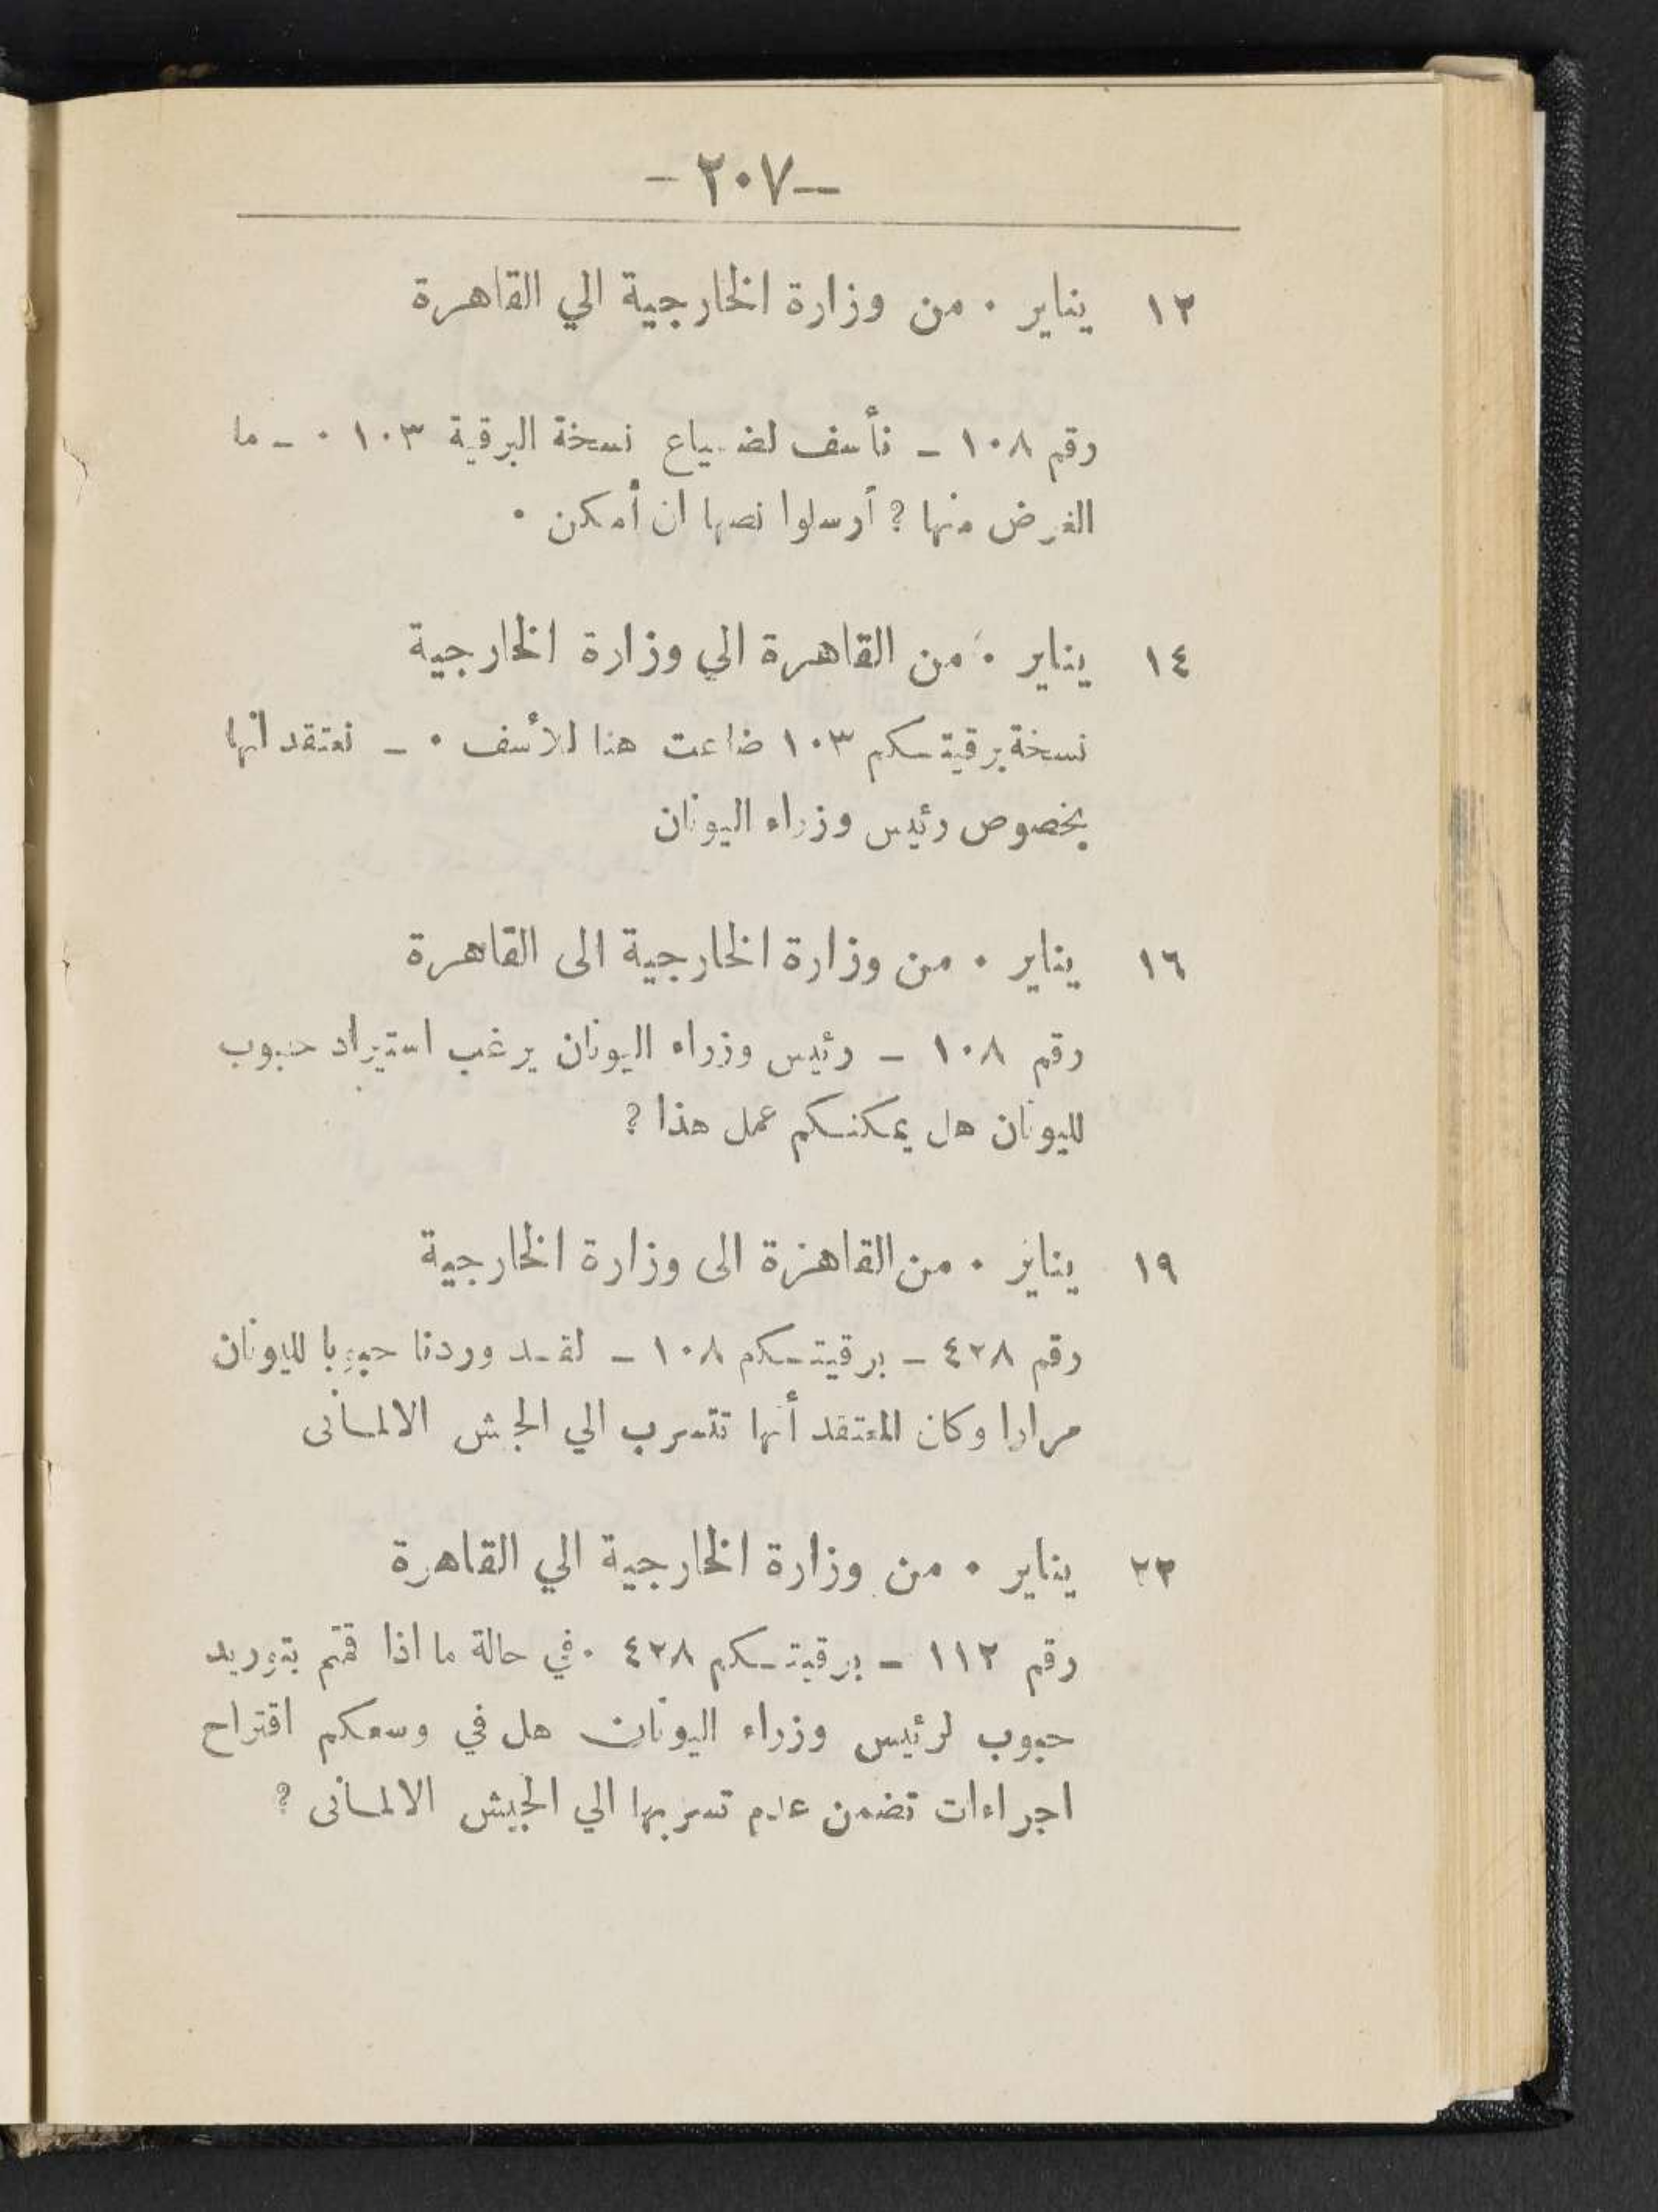 -٢٠٧-
١٢ يناير ٠ من وزارة الخارجية الي القاهرة
رقم ١٠٨ - نأسف لضياع نسخة البرقية ١٠٣ ٠ - ما
الغرض منها ? أرسلوا نصها ان أمكن ٠
١٤ يناير ٠ من القاهرة الي وزارة الخارجية
نسخة برقيتكم ١٠٣ ضاعت هنا للأسف ٠ - نعتقد انها
بخصوص رئيس وزراء اليونان
١٦ يناير ٠ من وزارة الخارجية الى القاهرة
رقم ١٠٨ - رئيس وزراء اليونان يرغب استيراد حبوب
لليونان هل يمكنكم عمل هذا ?
١٩ يناير ٠ من القاهرة الى وزارة الخارجية
رقم ٤٢٨ - برقيتكم ١٠٨ - لقد وردنا حبوبا لليونان
مرارا وكان المعتقد أنها تتسرب الي الجش الالمانى
٢٢ يناير ٠ من وزارة الخارجية الي القاهرة
رقم ١١٢ - برقيتكم ٤٢٨ ٠ في حالة ما اذا قمتم بتوريد
حبوب لرئيس وزراء اليونان هل في وسعكم اقتراح
اجراءات تضمن عدم تسربها الي الجيش الالمانى ?